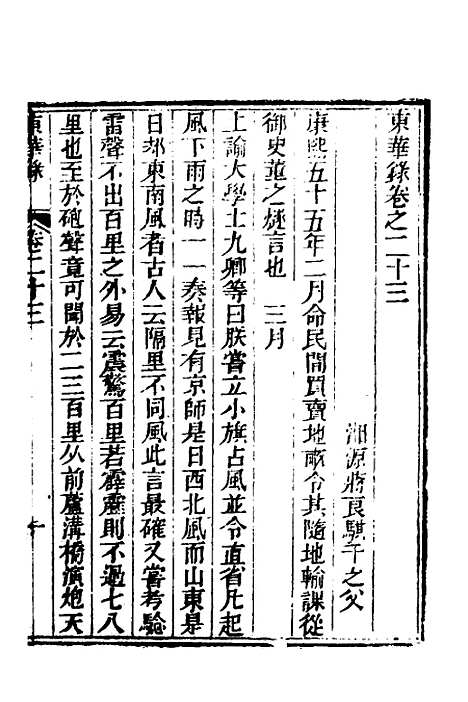 東華錄卷之二十三
湘源蔣良騏千之父
康熙五十五年二月命民間買賣地畝令其隨地輸課從
御史董之燧言也　三月
上諭大學士九卿等曰朕嘗立小旗占風並令直省凡起
風下雨之時一一奏報見有京師是日西北風而山東是
日却東南風者古人云隔里不同風此言最確又嘗考驗
雷聲不出百里之外易云震驚百里若霹靂則不過七八
里也至於砲聲竟可聞於二三百里从前蘆溝橋演炮天
東華錄
卷二十三
一